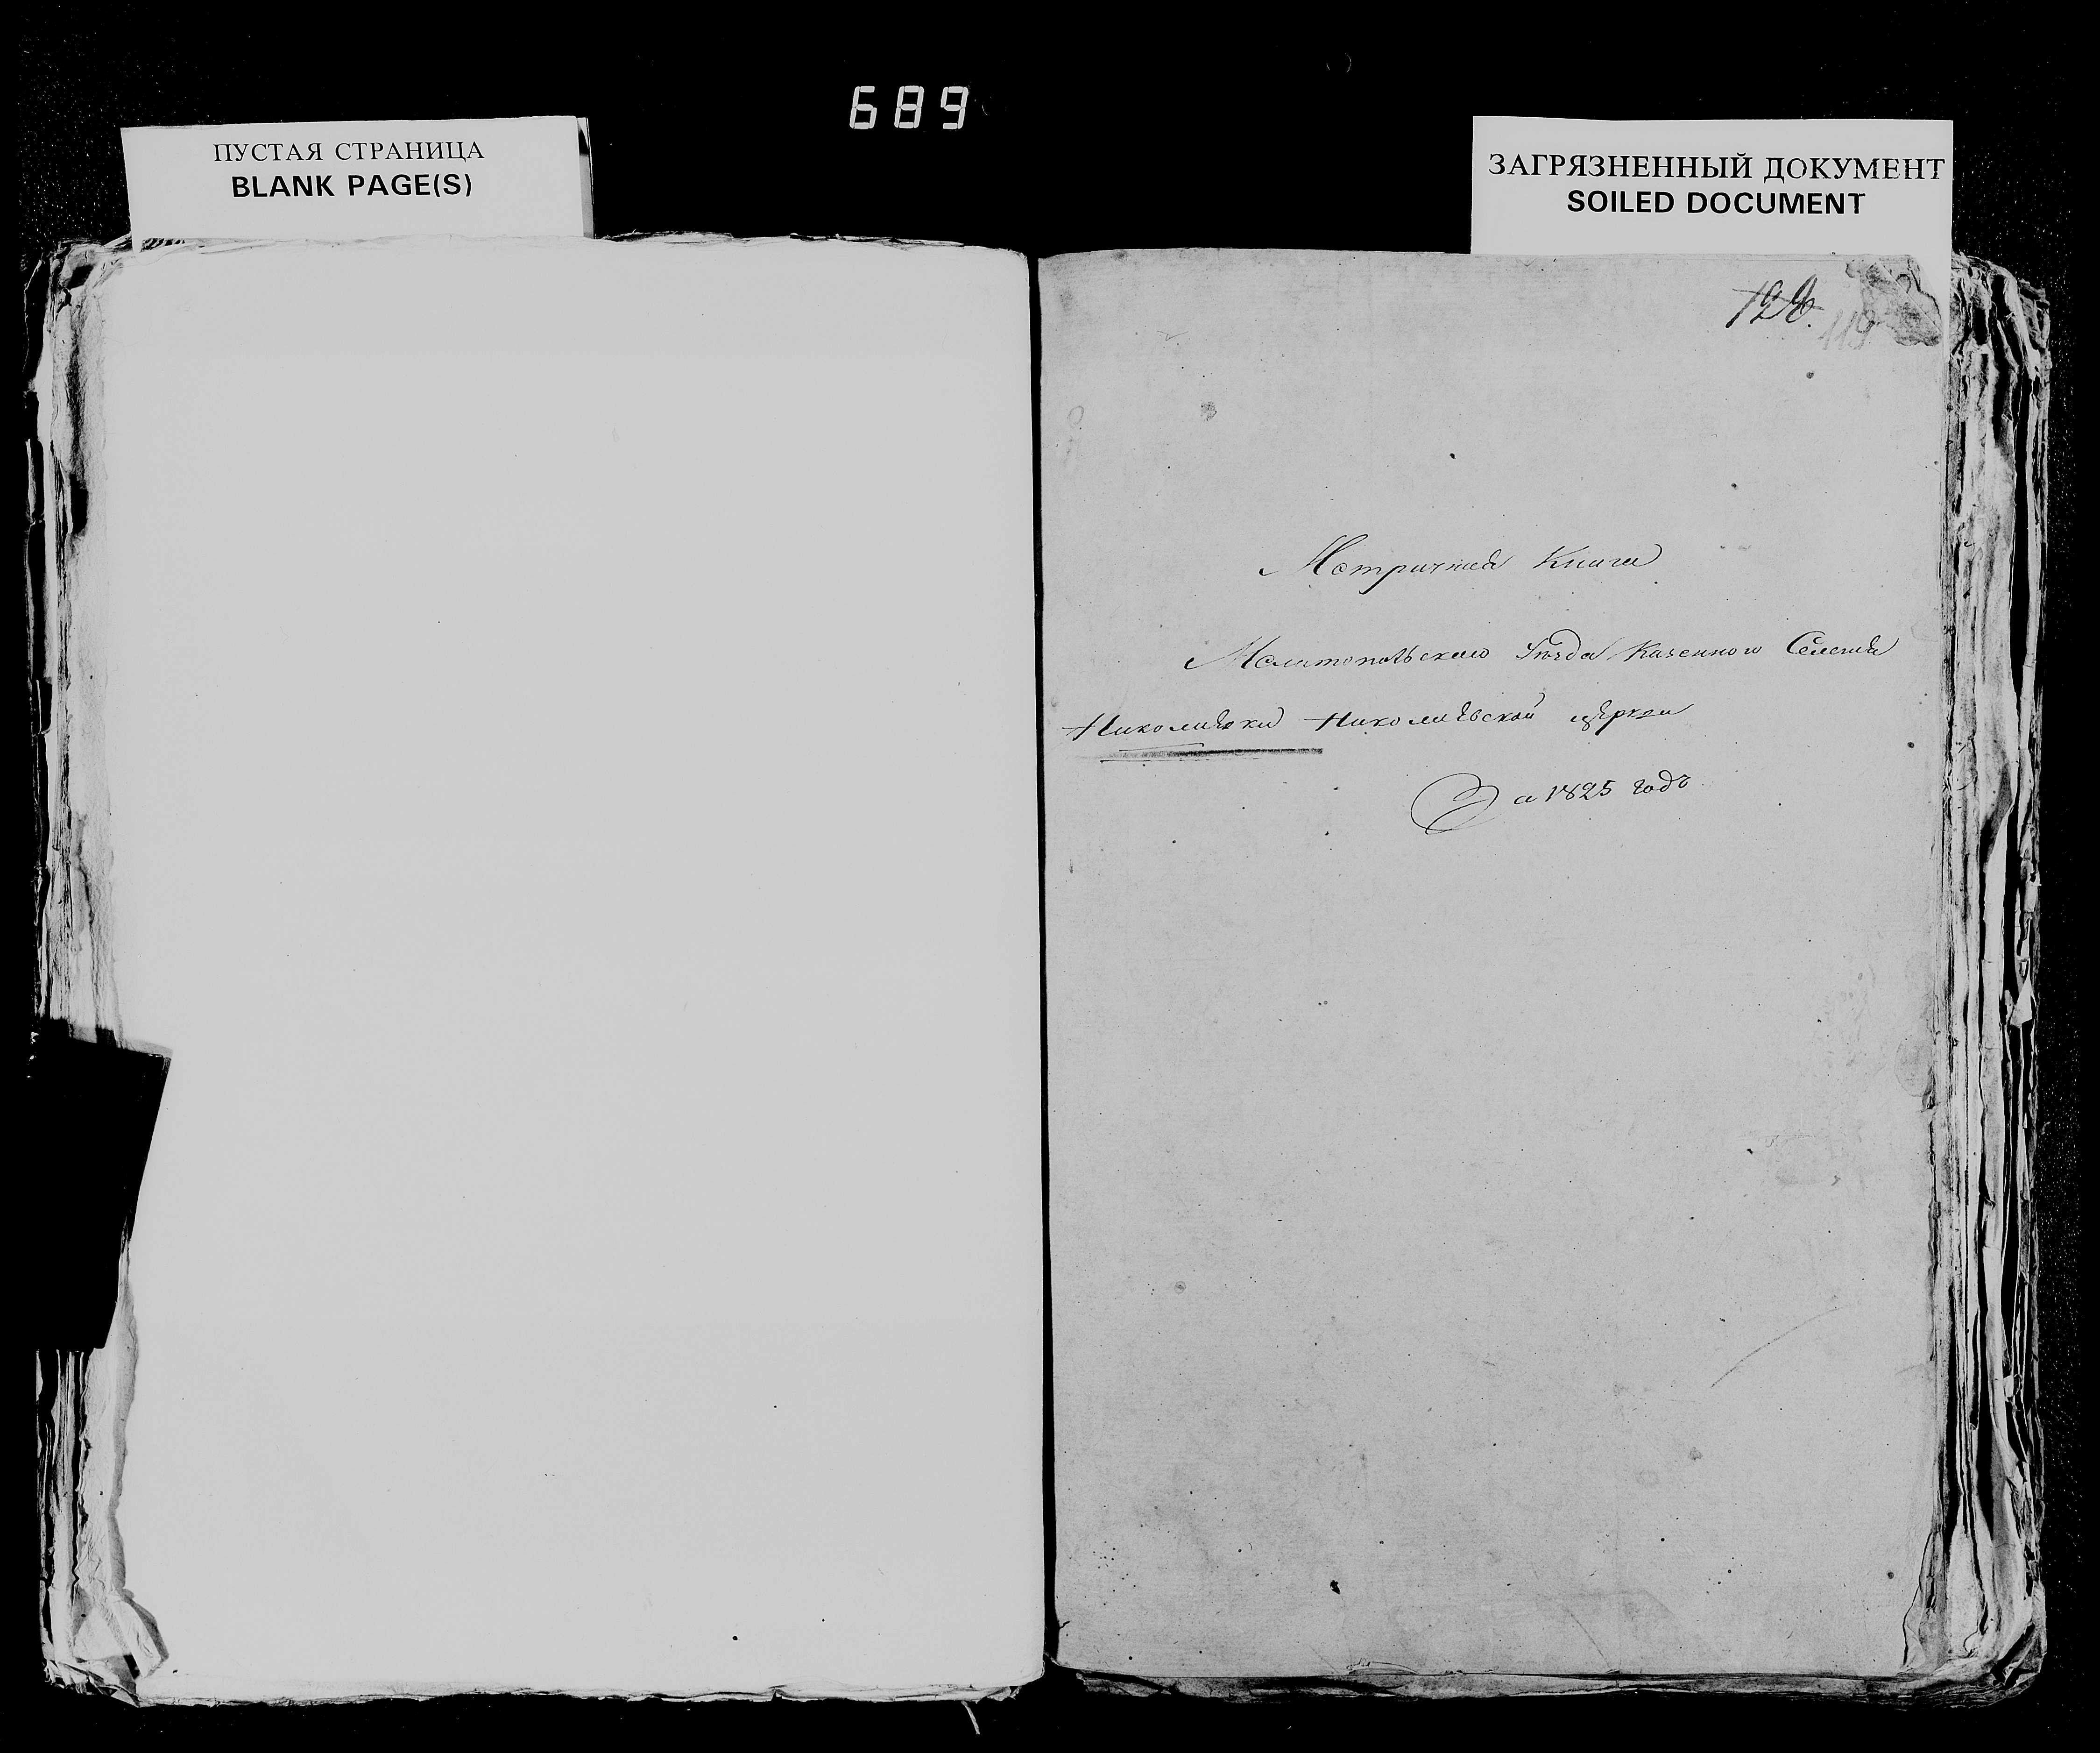 689
ПУСТАЯ СТРАНИЦА
BLANK PAGE(S)
ЗАГРЯЗНЕННЫЙ ДОКУМЕНТ
SOILED DOCUMENT
119
Метричная Книга
Мелитопольскаго Уезда Казенного Селения
Николаевки Николаевской церкви
За 1825 годъ